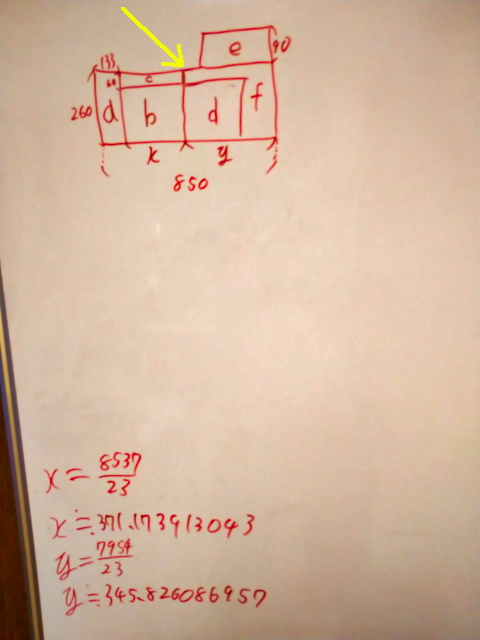 e
90
133
60
c
260
a
b
d
f
x
y
850
x = 8537/23
x ≒ 371.173913043
y = 7954/23
y ≒ 345.826086957